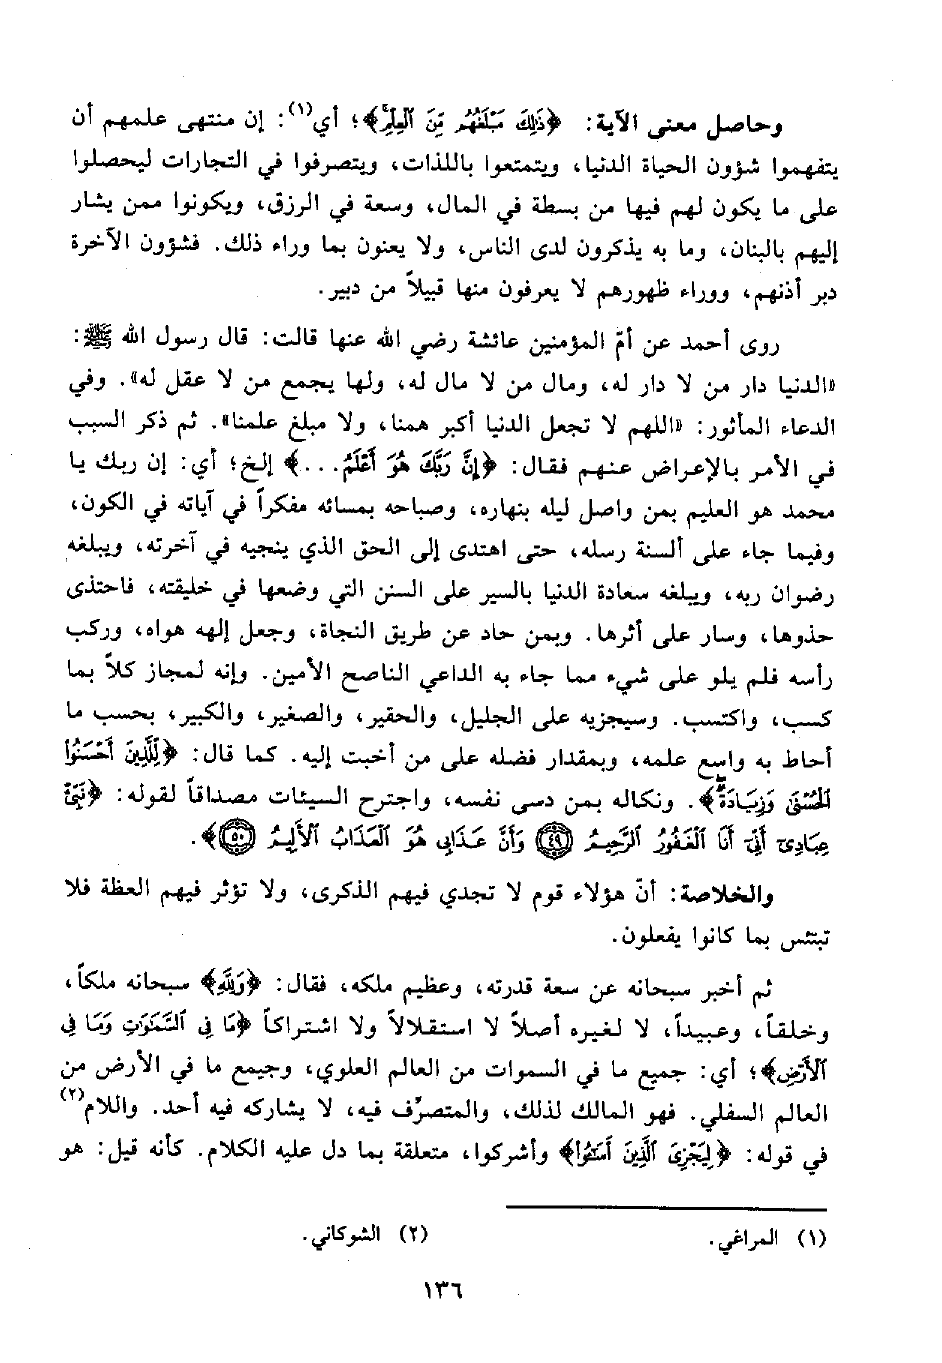 وحاصل معنى الآية: ﴿ذَلِكَ مَبْلَغُهُم مِّنَ الْعِلْمِ﴾؛ أي(١): إن منتهى علمهم أن
يتفهموا شؤون الحياة الدنيا، ويتمتعوا باللذات، ويتصرفوا في التجارات ليحصلوا
على ما يكون لهم فيها من بسطة في المال، وسعة في الرزق، ويكونوا ممن يشار
إليهم بالبنان، وما به يذكرون لدى الناس، ولا يعنون بما وراء ذلك. فشؤون الآخرة
دبر أذنهم، ووراء ظهورهم لا يعرفون منها قبيلاً من دبير.
روى أحمد عن أمّ المؤمنين عائشة رضي الله عنها قالت: قال رسول الله ﷺ:
«الدنيا دار من لا دار له، ومال من لا مال له، ولها يجمع من لا عقل له». وفي
الدعاء المأثور: «اللهم لا تجعل الدنيا أكبر همنا، ولا مبلغ علمنا». ثم ذكر السبب
في الأمر بالإعراض عنهم فقال: ﴿إِنَّ رَبَّكَ هُوَ أَعْلَمُ...﴾ إلخ؛ أي: إن ربك يا
محمد هو العليم بمن واصل ليله بنهاره، وصباحه بمسائه مفكراً في آياته في الكون،
وفيما جاء على ألسنة رسله، حتى اهتدى إلى الحق الذي ينجيه في آخرته، ويبلغه
رضوان ربه، ويبلغه سعادة الدنيا بالسير على السنن التي وضعها في خليقته، فاحتذى
حذوها، وسار على أثرها. وبمن حاد عن طريق النجاة، وجعل إلهه هواه، وركب
رأسه فلم يلو على شيء مما جاء به الداعي الناصح الأمين. وإنه لمجاز كلاً بما
كسب، واكتسب. وسيجزيه على الجليل، والحقير، والصغير، والكبير، بحسب ما
أحاط به واسع علمه، وبمقدار فضله على من أخبت إليه. كما قال: ﴿لِّلَّذِينَ أَحْسَنُوا
الْحُسْنَى وَزِيَادَةٌ﴾. ونكاله بمن دسى نفسه، واجترح السيئات مصداقاً لقوله: ﴿نَبِّئْ
عِبَادِي أَنِّي أَنَا الْغَفُورُ الرَّحِيمُ ﴿٤٩﴾ وَأَنَّ عَذَابِي هُوَ الْعَذَابُ الْأَلِيمُ ﴿٥٠﴾﴾.
والخلاصة: أنّ هؤلاء قوم لا تجدي فيهم الذكرى، ولا تؤثر فيهم العظة فلا
تبتئس بما كانوا يفعلون.
ثم أخبر سبحانه عن سعة قدرته، وعظيم ملكه، فقال: ﴿وَلِلَّهِ﴾ سبحانه ملكاً،
وخلقاً، وعبيداً، لا لغيره أصلاً لا استقلالاً ولا اشتراكاً ﴿مَا فِي السَّمَوَاتِ وَمَا فِي
الْأَرْضِ﴾؛ أي: جميع ما في السموات من العالم العلوي، وجيمع ما في الأرض من
العالم السفلي. فهو المالك لذلك، والمتصرِّف فيه، لا يشاركه فيه أحد. واللام(٢)
في قوله: ﴿لِيَجْزِيَ الَّذِينَ أَسَاءُوا﴾ وأشركوا، متعلقة بما دل عليه الكلام. كأنه قيل: هو
(١) المراغي.
(٢) الشوكاني.
١٣٦